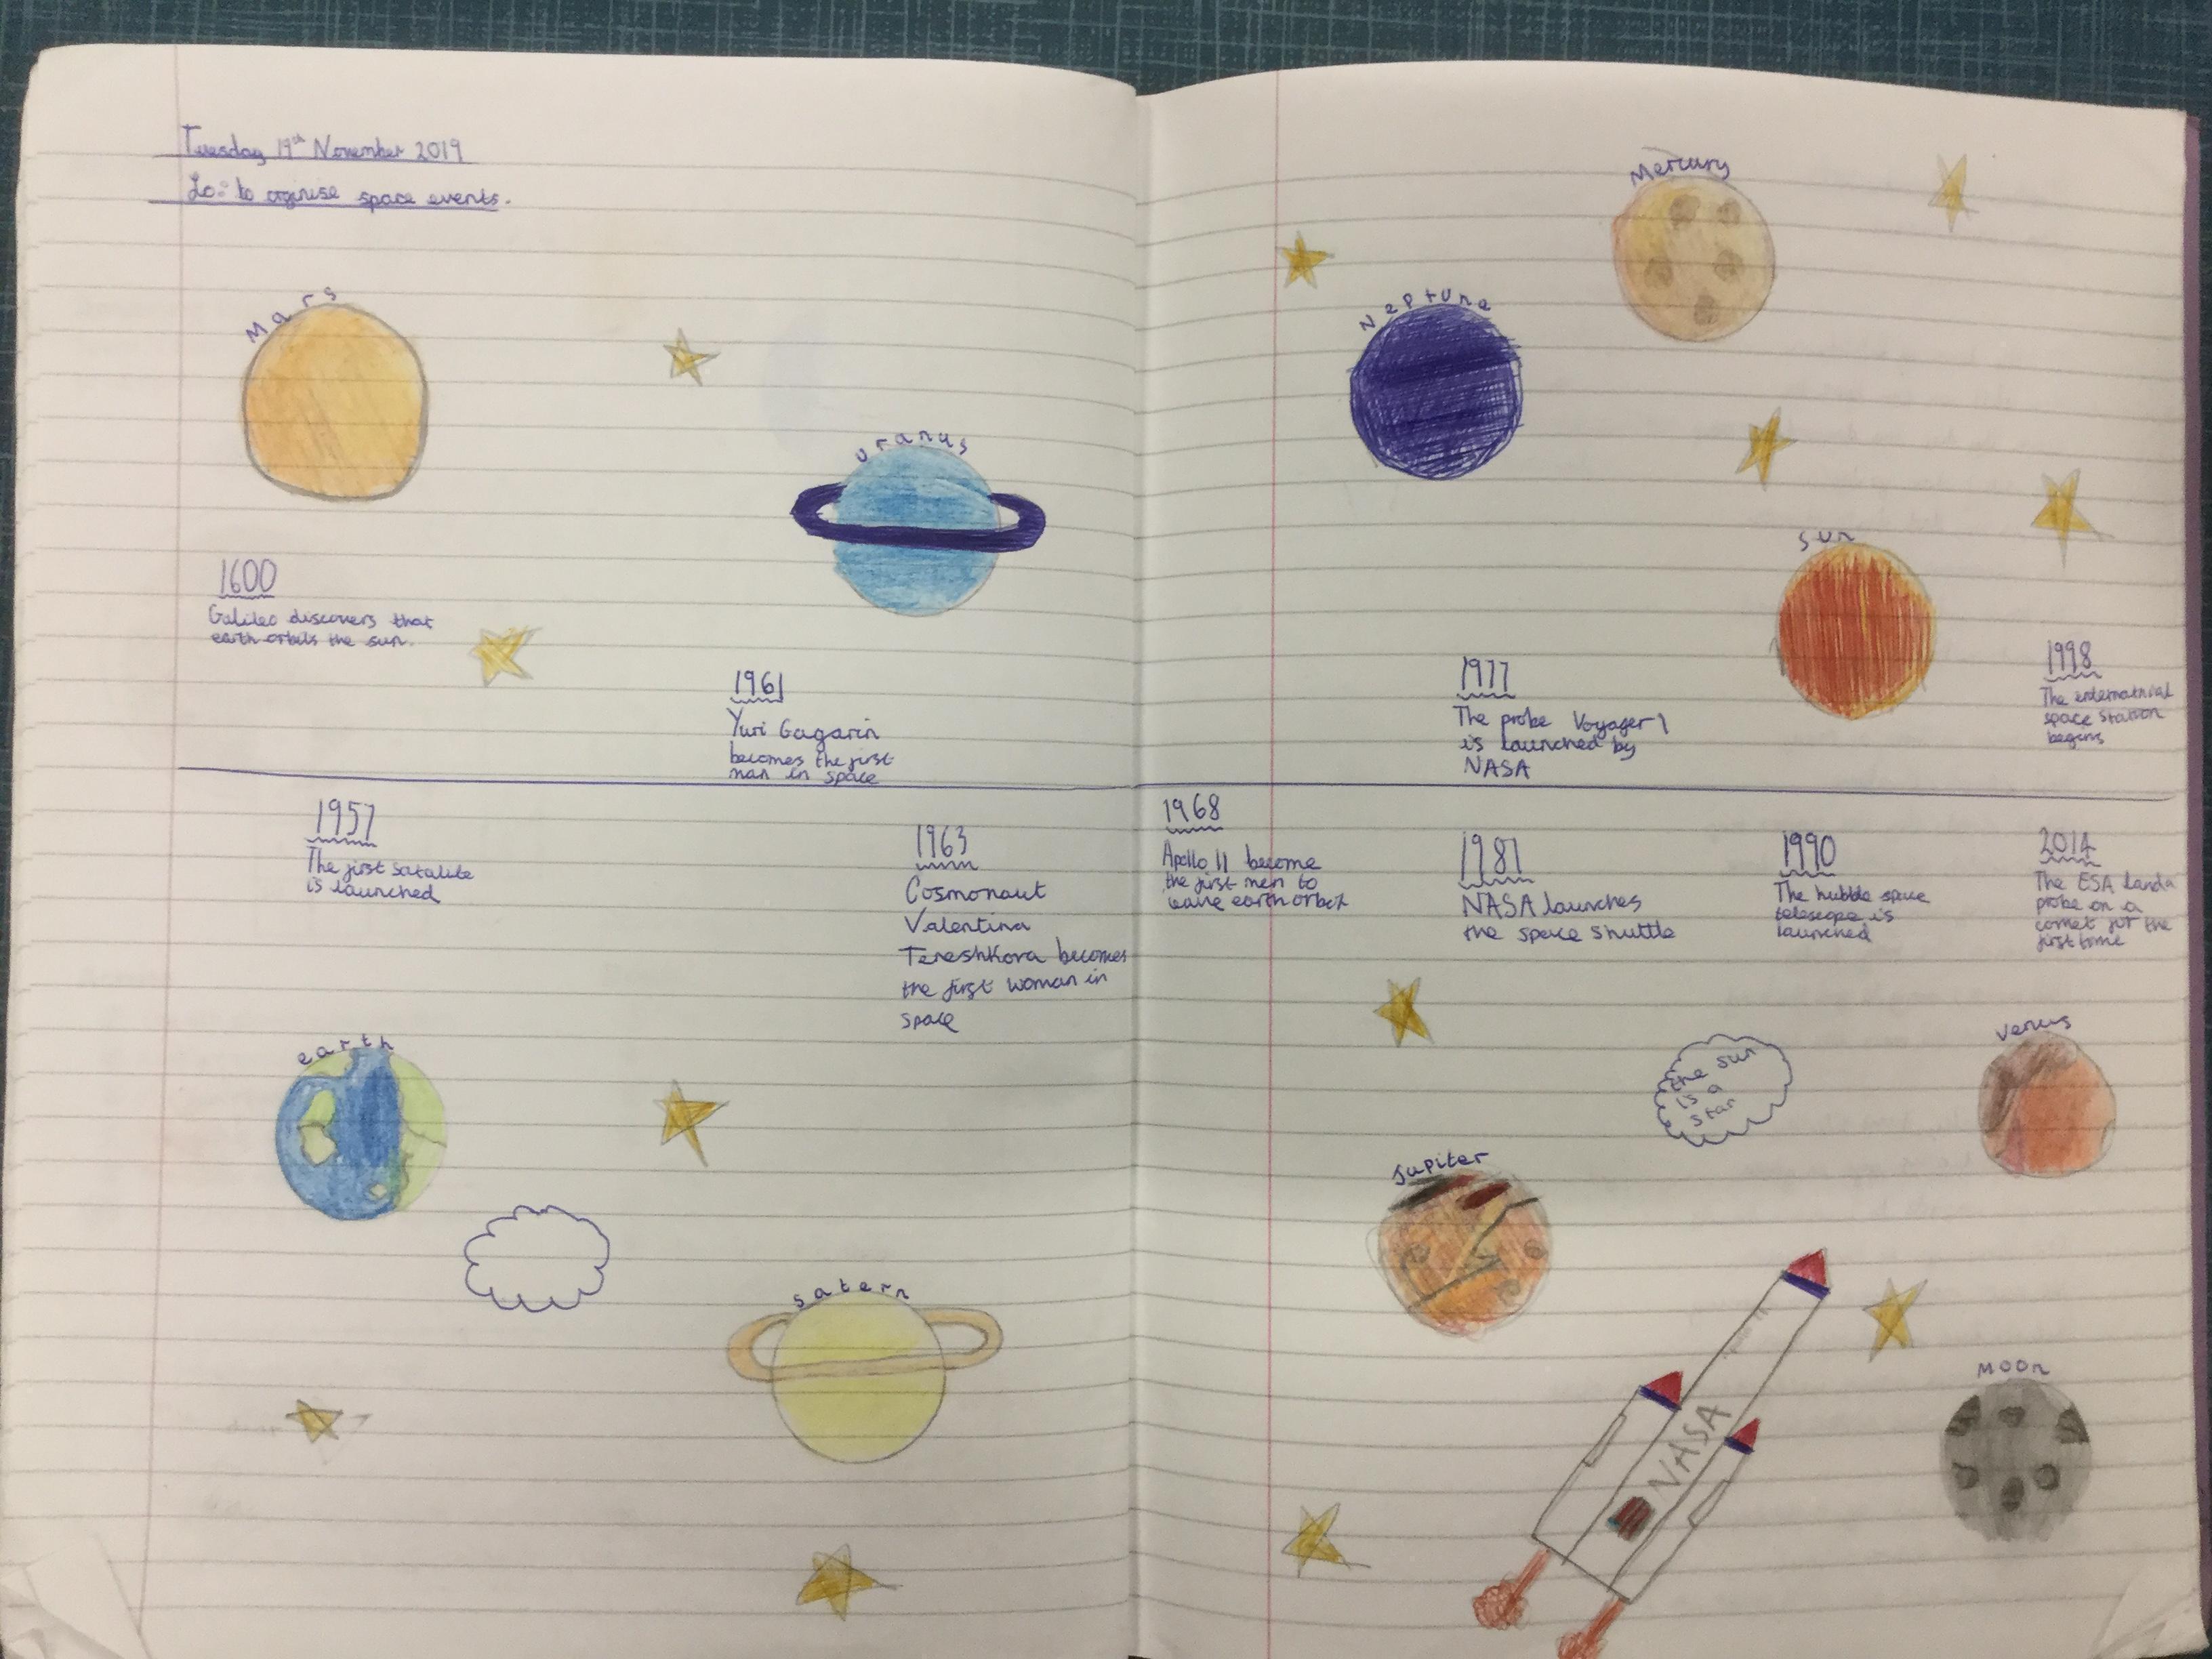 Tuesday 19th November 2019
Lo: to orginise space events.
Mars
Uranus
1600
Galileo discovers that
earth orbits the sun.
1961
Yuri Gagarin
becomes the first
man in space
1957
The first satalite
is launched
1963
Cosmonaut
Valentina
Tereshkova becomes
the first woman in
space
earth
satern
Mercury
Neptune
Sun
1977
The probe Voyager 1
is launched by
NASA
1998
The
space station
begins
1968
Apollo 11 become
the first men to
leave earth orbit
1981
NASA launches
the space shuttle
1990
The hubble space
telescope is
launched
2014
The ESA landa
probe on a
comet for the
first time
the sun
is a
star
Venus
Jupiter
NASA
Moon